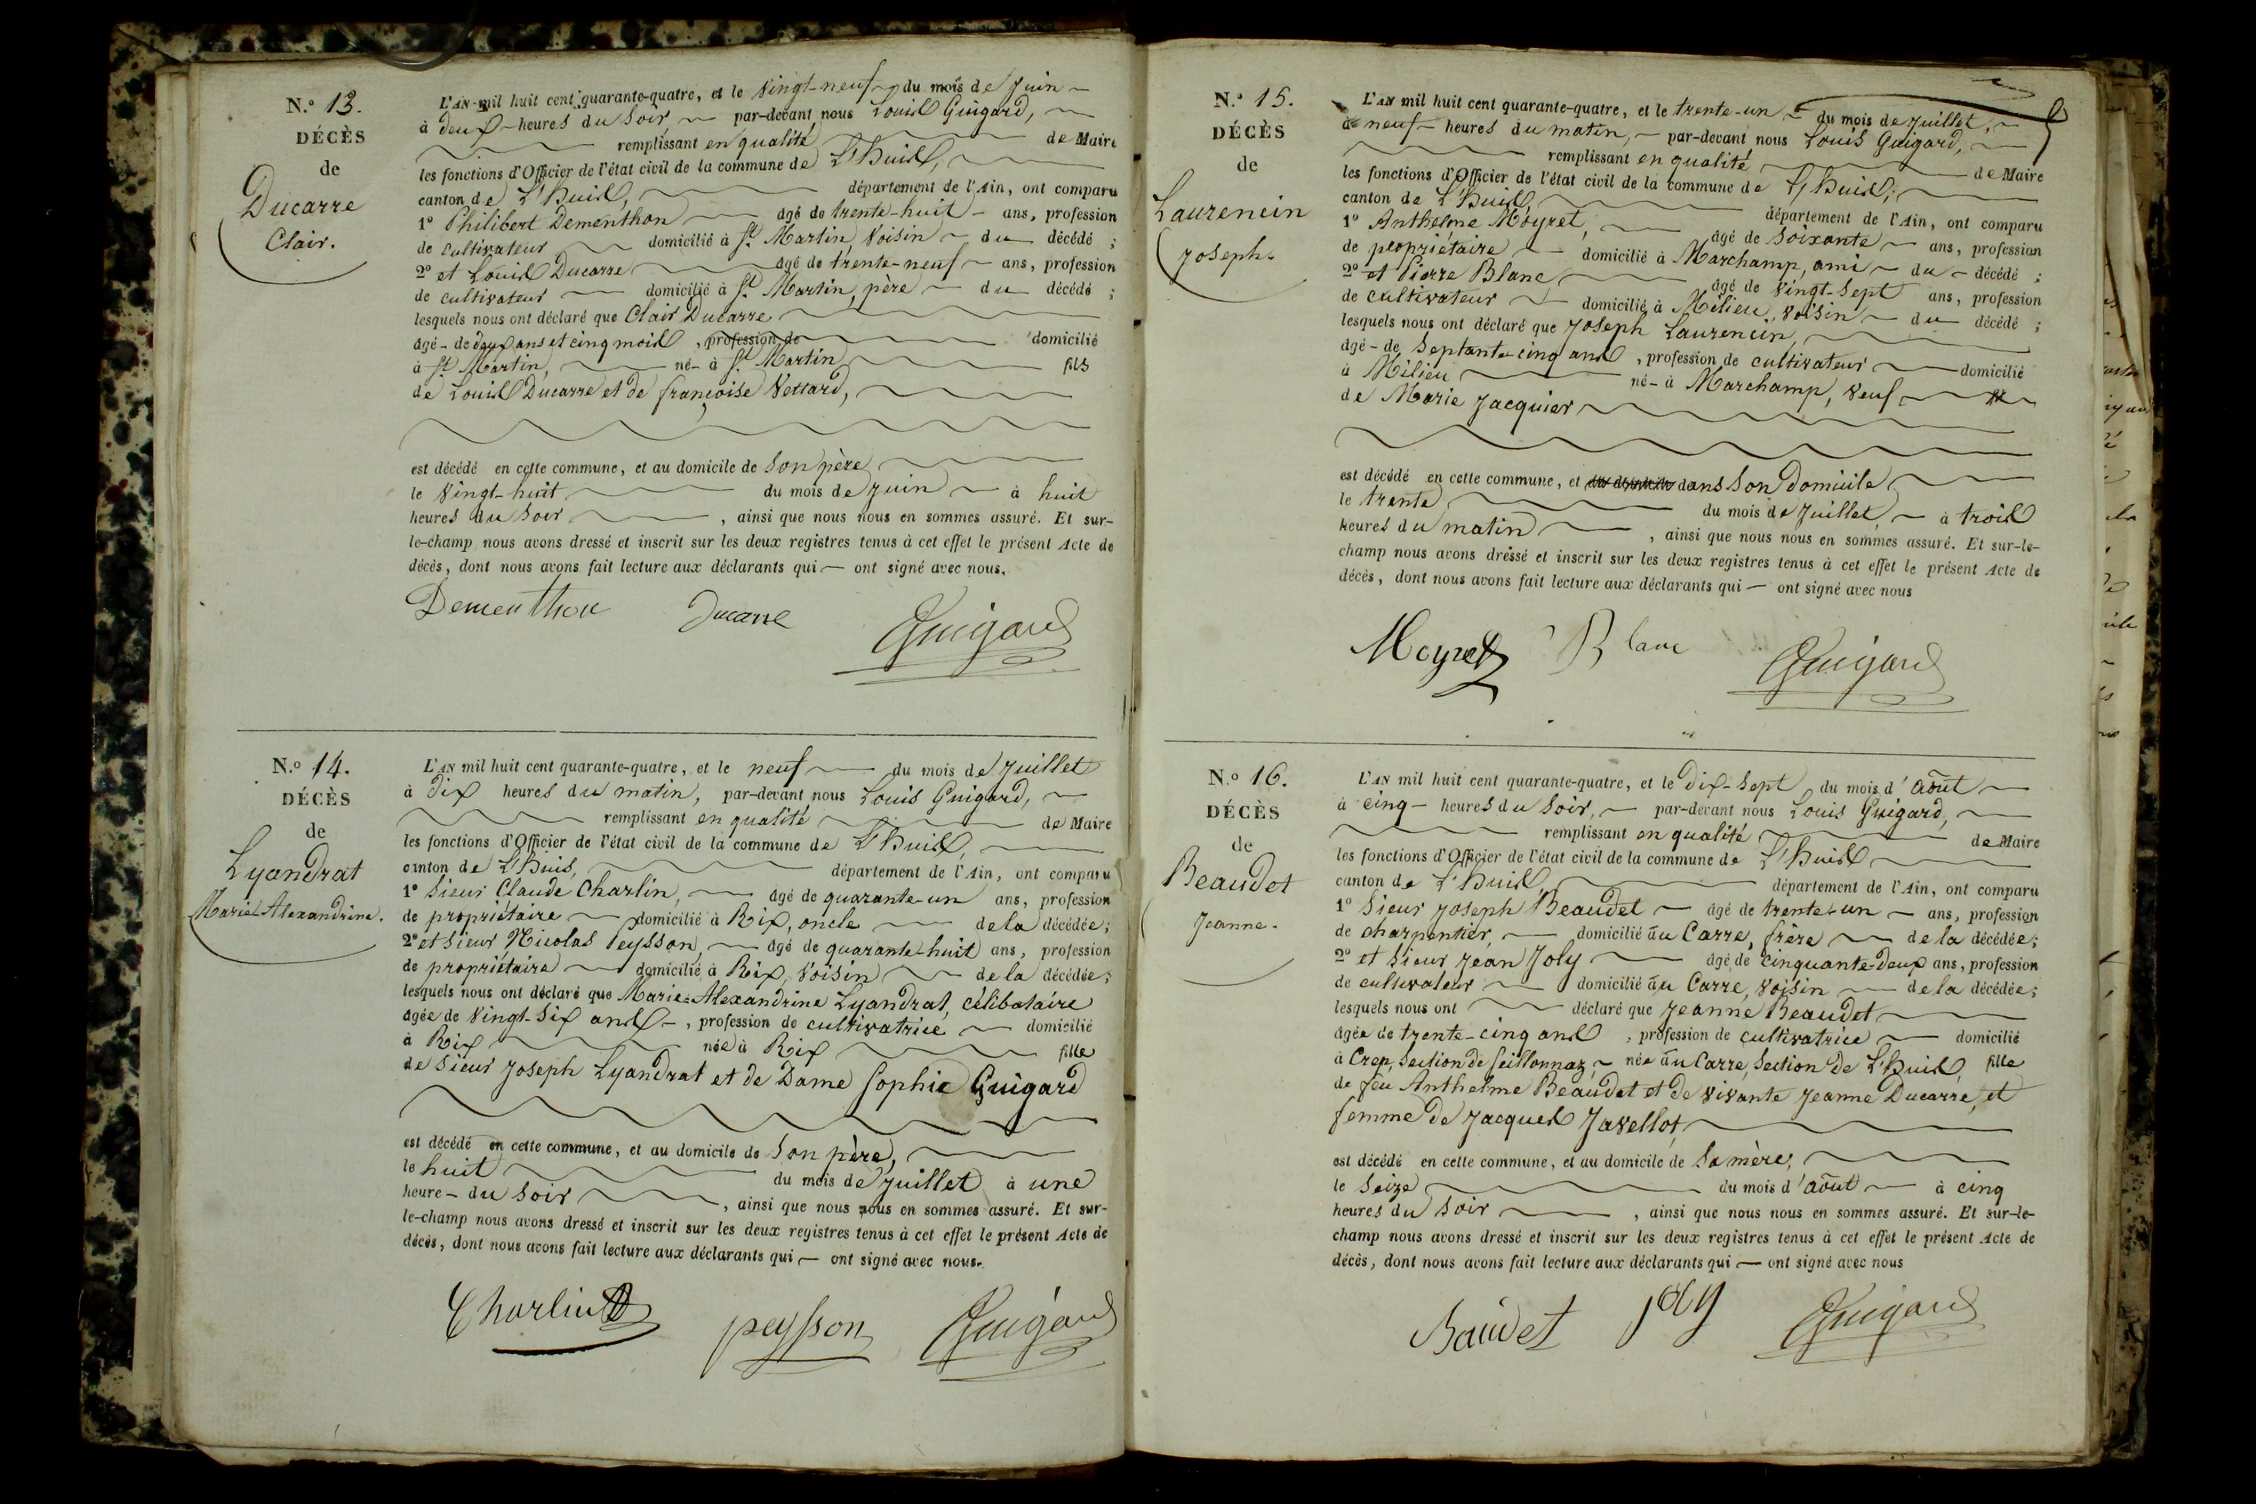 N.º 13.
DÉCÈS
de
Ducarre
Clair.
L'AN mil huit cent quarante-quatre, et le vingt-neuf du mois de Juin
à deux heures du soir par-devant nous Louis Guigard,
remplissant en qualité de Maire
les fonctions d'Officier de l'état civil de la commune de L'huis,
canton de L'huis, département de l'Ain, ont comparu
1º Philibert Dementhon âgé de trente-huit ans, profession
de cultivateur domicilié à St. Martin, voisin du décédé ;
2º et Louis Ducarre âgé de trente-neuf ans, profession
de cultivateur domicilié à St. Martin, père du décédé ;
lesquels nous ont déclaré que Clair Ducarre
âgé de deux ans et cinq mois, profession de domicilié
à St. Martin, né à St. Martin fils
de Louis Ducarre et de françoise Vettard,
est décédé en cette commune, et au domicile de son père
le vingt-huit du mois de Juin à huit
heures du soir, ainsi que nous nous en sommes assuré. Et sur-
le-champ nous avons dressé et inscrit sur les deux registres tenus à cet effet le présent Acte de
décès, dont nous avons fait lecture aux déclarants qui ont signé avec nous.
Dementhon Ducarre Guigard
N.º 14.
DÉCÈS
de
Lyandrat
Marie-Alexandrine.
L'AN mil huit cent quarante-quatre, et le neuf du mois de Juillet
à dix heures du matin, par-devant nous Louis Guigard,
remplissant en qualité de Maire
les fonctions d'Officier de l'état civil de la commune de L'huis,
canton de L'huis, département de l'Ain, ont comparu
1º Sieur Claude Charlin, âgé de quarante-un ans, profession
de propriétaire domicilié à Rix, oncle de la décédée;
2º et sieur Nicolas Peysson, âgé de quarante-huit ans, profession
de propriétaire domicilié à Rix, voisin de la décédée;
lesquels nous ont déclaré que Marie-Alexandrine Lyandrat, célibataire
âgée de vingt-six ans, profession de cultivatrice domicilié
à Rix née à Rix fille
de sieur Joseph Lyandrat et de Dame Sophie Guigard
est décédé en cette commune, et au domicile de son père,
le huit du mois de Juillet à une
heure du soir, ainsi que nous nous en sommes assuré. Et sur-
le-champ nous avons dressé et inscrit sur les deux registres tenus à cet effet le présent Acte de
décès, dont nous avons fait lecture aux déclarants qui ont signé avec nous.
Charlin peysson Guigard
N.º 15.
DÉCÈS
de
Laurencin
Joseph.
L'AN mil huit cent quarante-quatre, et le trente-un du mois de Juillet,
à neuf heures du matin, par-devant nous Louis Guigard,
remplissant en qualité de Maire
les fonctions d'Officier de l'état civil de la commune de L'huis,
canton de L'huis, département de l'Ain, ont comparu
1º Anthelme Moyret, âgé de soixante ans, profession
de propriétaire domicilié à Marchamp, ami du décédé ;
2º et Pierre Blanc âgé de vingt-sept ans, profession
de cultivateur domicilié à Milieu, voisin du décédé ;
lesquels nous ont déclaré que Joseph Laurencin,
âgé de septante-cinq ans, profession de cultivateur domicilié
à Milieu né à Marchamp, veuf
de Marie Jacquier
est décédé en cette commune, et au domicile dans son domicile,
le trente du mois de Juillet, à trois
heures du matin, ainsi que nous nous en sommes assuré. Et sur-le-
champ nous avons dressé et inscrit sur les deux registres tenus à cet effet le présent Acte de
décès, dont nous avons fait lecture aux déclarants qui ont signé avec nous
Moyret Blanc Guigard
N.º 16.
DÉCÈS
de
Beaudet
Jeanne.
L'AN mil huit cent quarante-quatre, et le dix-sept du mois d'août
à cinq heures du soir, par-devant nous Louis Guigard,
remplissant en qualité de Maire
les fonctions d'Officier de l'état civil de la commune de L'huis
canton de L'huis, département de l'Ain, ont comparu
1º Sieur Joseph Beaudet âgé de trente-un ans, profession
de charpentier, domicilié au Carre, frère de la décédée;
2º et sieur Jean Joly âgé de cinquante-deux ans, profession
de cultivateur domicilié au Carre, voisin de la décédée;
lesquels nous ont déclaré que Jeanne Beaudet
âgée de trente-cinq ans, profession de cultivatrice domicilié
à Crep, section de Seillonnaz, née au Carre, section de L'huis, fille
de feu Anthelme Beaudet et de vivante Jeanne Ducarre, et
femme de Jacques Javellot
est décédé en cette commune, et au domicile de sa mère,
le seize du mois d'août à cinq
heures du soir, ainsi que nous nous en sommes assuré. Et sur-le-
champ nous avons dressé et inscrit sur les deux registres tenus à cet effet le présent Acte de
décès, dont nous avons fait lecture aux déclarants qui ont signé avec nous
Baudet joly Guigard